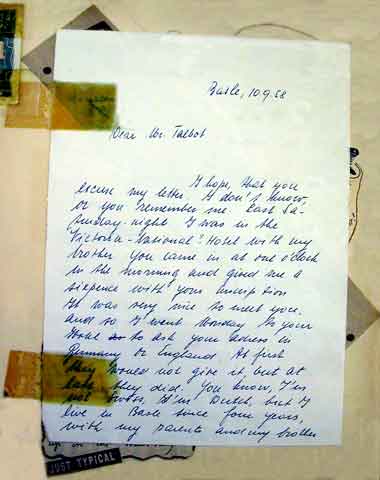 Basle, 10 9.58
Dear Mr. Talbot
I hope, that you
excuse my letter. I don't know,
or you remember me. Last Sa-
turday-night I was in the
Victoria-National-Hotel with my
brother. You came in at one o'clock
in the morning and gived me a
sixpence with your inscription
It was very nice to meet you.
and so I went Monday to your
Hotel to ask your adress in
Germany or England. At first
they would not give it, but at
last they did. You know, I'm
not Swiss, I'm Dutch, but I
live in Basle since four years,
with my parents and my brother
JUST TYPICAL